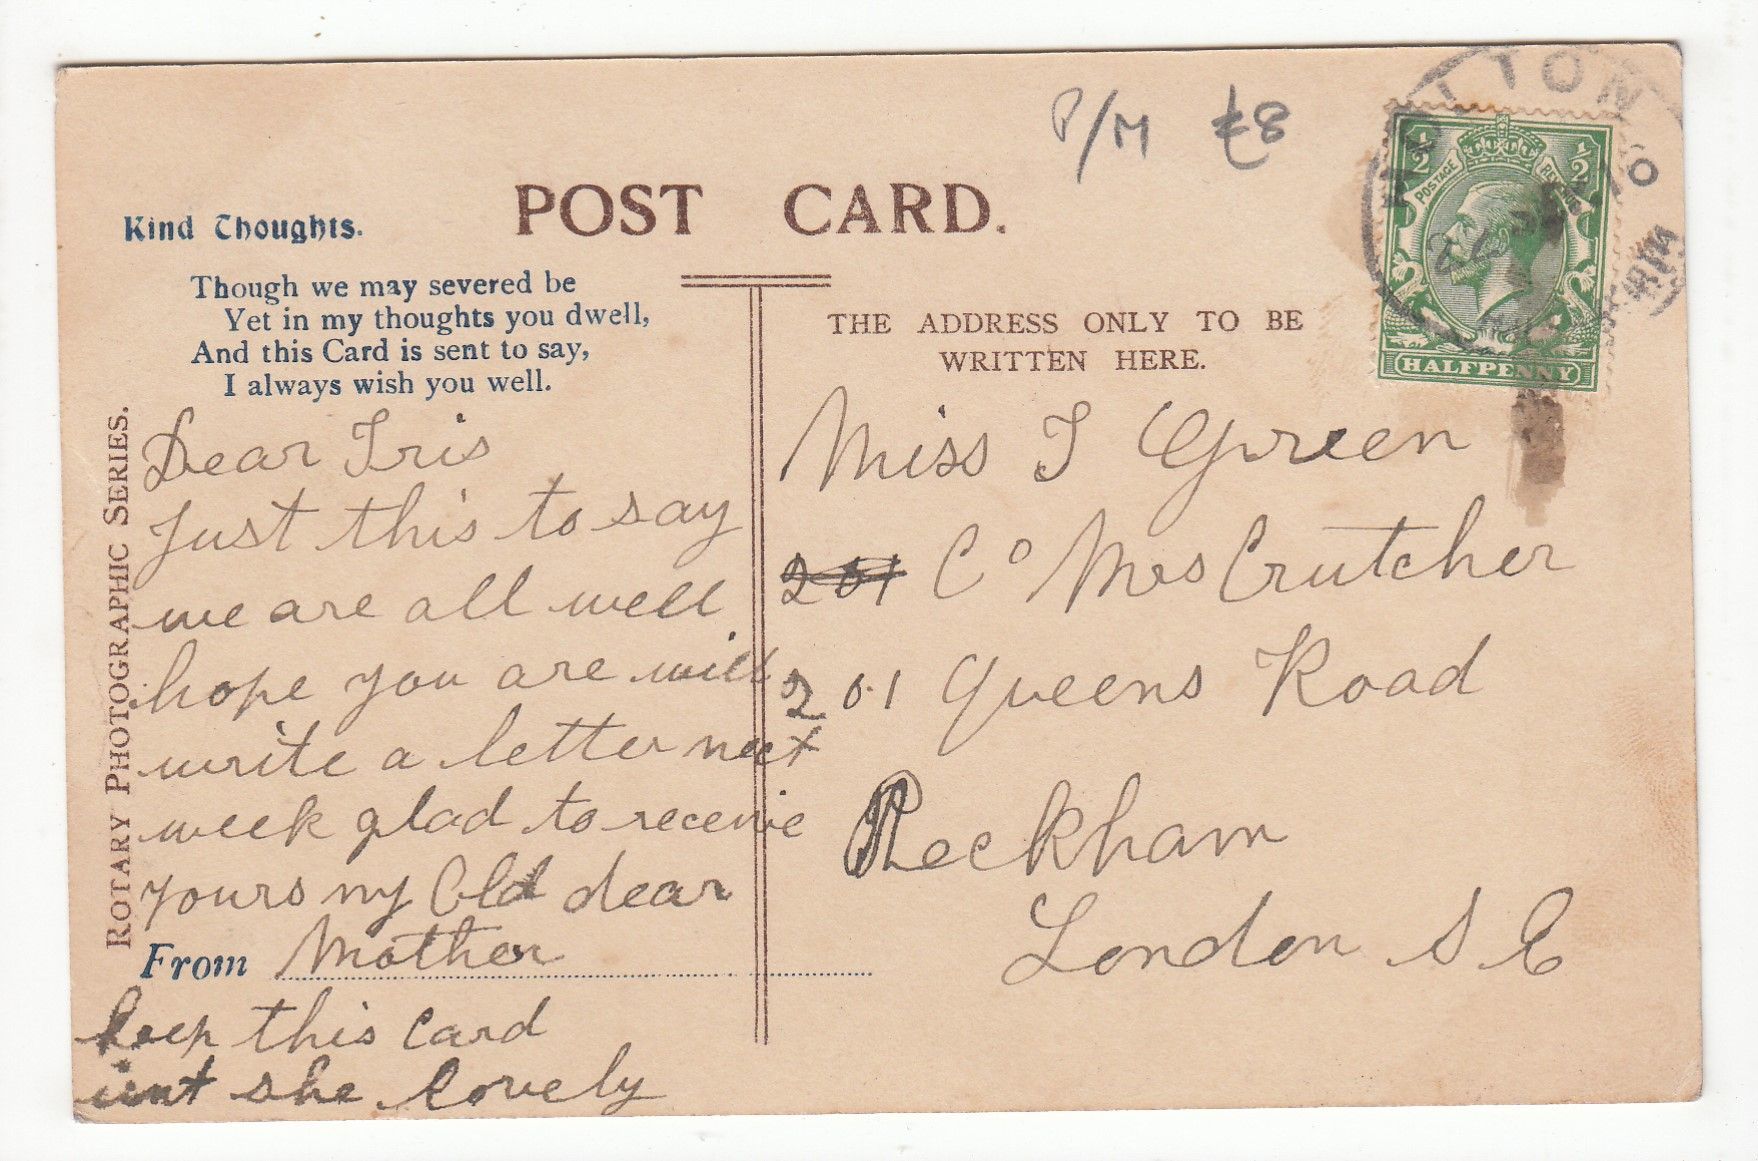 P/M £8
POST CARD.
Kind Thoughts.
Though we may severed be
Yet in my thoughts you dwell,
And this Card is sent to say,
I always wish you well.
ROTARY PHOTOGRAPHIC SERIES.
Dear Iris
Just this to say
we are all well
hope you are will
write a letter next
week glad to receive
yours my Old dear
From Mother
keep this card
isnt she lovely
THE ADDRESS ONLY TO BE
WRITTEN HERE.
Miss I Green
201 C° Mrs Crutcher
201 Queens Road
Peckham
London S E
½ ½
POSTAGE REVENUE
HALFPENNY